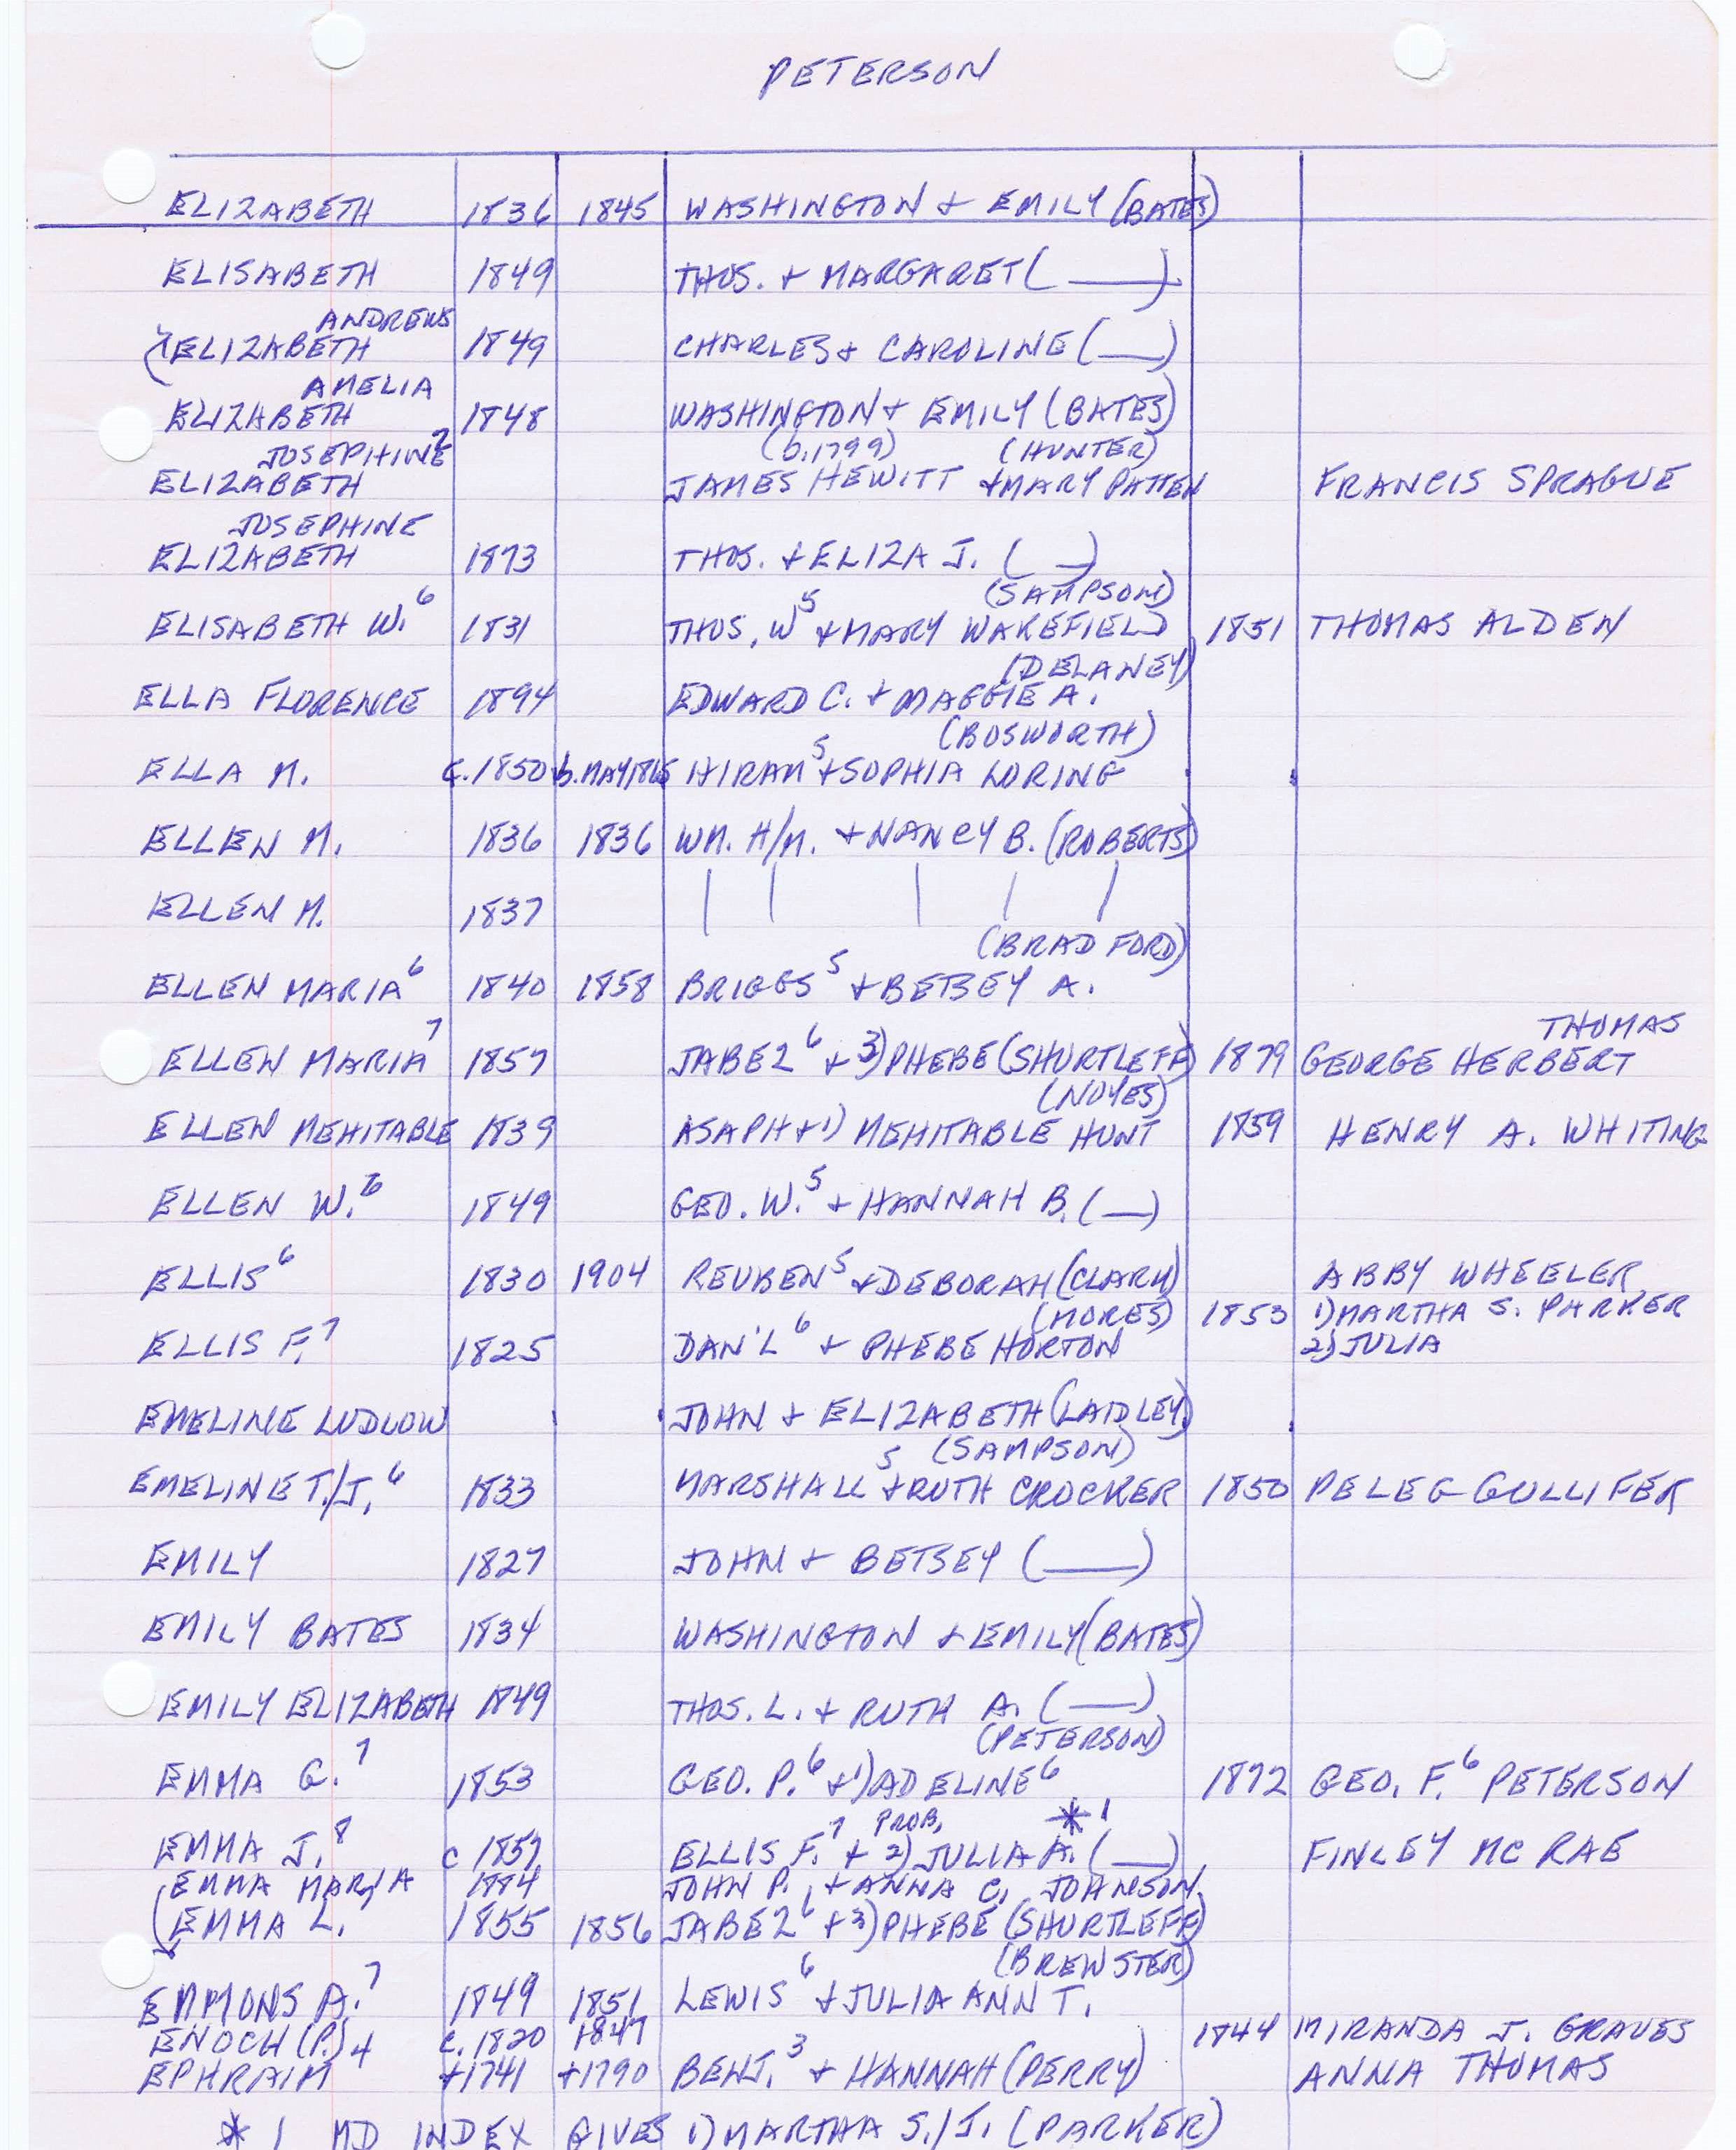 PETERSON
ELIZABETH 1836 1845 WASHINGTON + EMILY (BATES)
ELISABETH 1849 THOS. + MARGARET (____)
ANDREWS
ELIZABETH 1849 CHARLES + CAROLINE (___)
AMELIA
ELIZABETH 1848 WASHINGTON + EMILY (BATES)
JOSEPHINE (b.1799) (HUNTER)
ELIZABETH JAMES HEWITT + MARY PATTEN FRANCIS SPRAGUE
JOSEPHINE
ELIZABETH 1873 THOS. + ELIZA J. (__)
(SAMPSON)
ELISABETH W.6 1831 THOS. W5 + MARY WAKEFIELD 1851 THOMAS ALDEN
(DELANEY)
ELLA FLORENCE 1894 EDWARD C. + MAGGIE A.
(BOSWORTH)
ELLA M. c.1850 b. MAY 1865 HIRAM5 + SOPHIA LORING
ELLEN M. 1836 1836 WM. H/M. + NANCY B. (ROBERTS)
ELLEN M. 1837 | | | | |
(BRADFORD)
ELLEN MARIA6 1840 1858 BRIGGS5 + BETSEY A.
THOMAS
ELLEN MARIA7 1857 JABEZ6 + 3) PHEBE (SHURTLEFF) 1879 GEORGE HERBERT
(NOYES)
ELLEN MEHITABLE 1839 ASAPH + 1) MEHITABLE HUNT 1859 HENRY A. WHITING
ELLEN W.6 1849 GEO. W.5 + HANNAH B. (__)
ELLIS6 1830 1904 REUBEN5 + DEBORAH (CLARK) ABBY WHEELER
(MORES) 1853 1) MARTHA S. PARKER
ELLIS F.7 1825 DAN'L6 + PHEBE HORTON 2) JULIA
EMELINE LUDLOW JOHN + ELIZABETH (LAIDLEY)
(SAMPSON)
EMELINE T./J.6 1833 MARSHALL5 + RUTH CROCKER 1850 PELEG GULLIFER
EMILY 1827 JOHN + BETSEY (____)
EMILY BATES 1834 WASHINGTON + EMILY (BATES)
EMILY ELIZABETH 1849 THOS. L. + RUTH A. (___)
(PETERSON)
EMMA G.7 1853 GEO. P.6 + 1) ADELINE6 1872 GEO. F.6 PETERSON
PROB. *1
EMMA J.8 c 1857 ELLIS F.7 + 2) JULIA A. (___) FINLEY MC RAE
EMMA MARIA 1884 JOHN P. + ANNA C. JOHNSON
EMMA L.7 1855 1856 JABEZ6 + 3) PHEBE (SHURTLEFF)
(BREWSTER)
EMMONS A.7 1849 1851 LEWIS6 + JULIA ANN T.
ENOCH (P.) c. 1820 1847 1844 MIRANDA J. GRAVES
EPHRAIM4 +1741 +1790 BENJ.3 + HANNAH (PERRY) ANNA THOMAS
* 1 MD INDEX GIVES 1) MARTHA S./J. (PARKER)